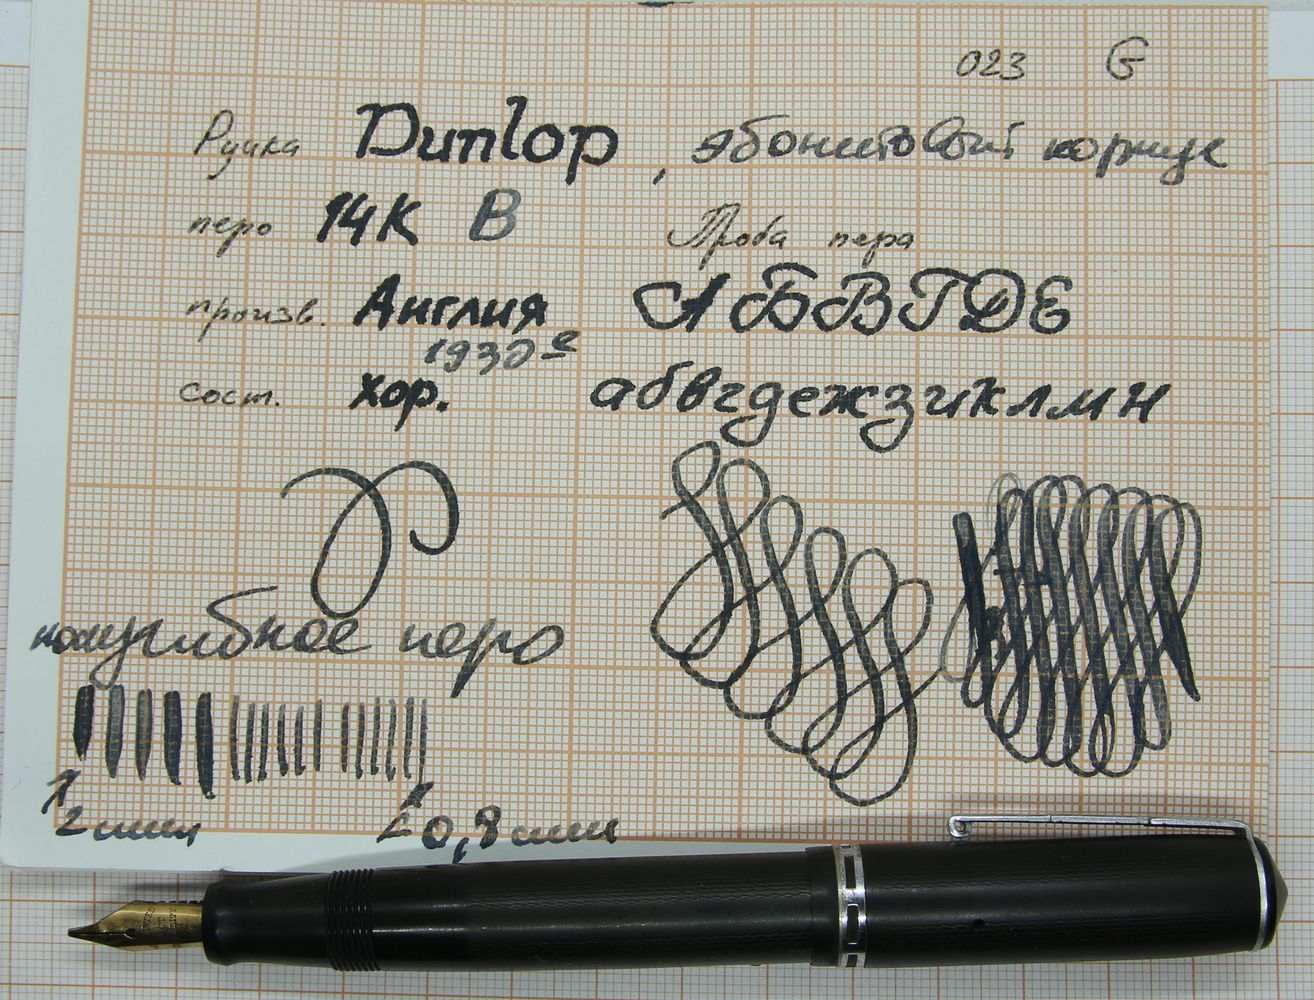 023 G
Ручка Dunlop, эбонитовый корпус
перо 14К В
Проба пера
произв. Англия
1930е
АБВГДЕ
сост. хор.
абвгдежзиклмн
полугибкое перо
2 мм
0,8 мм